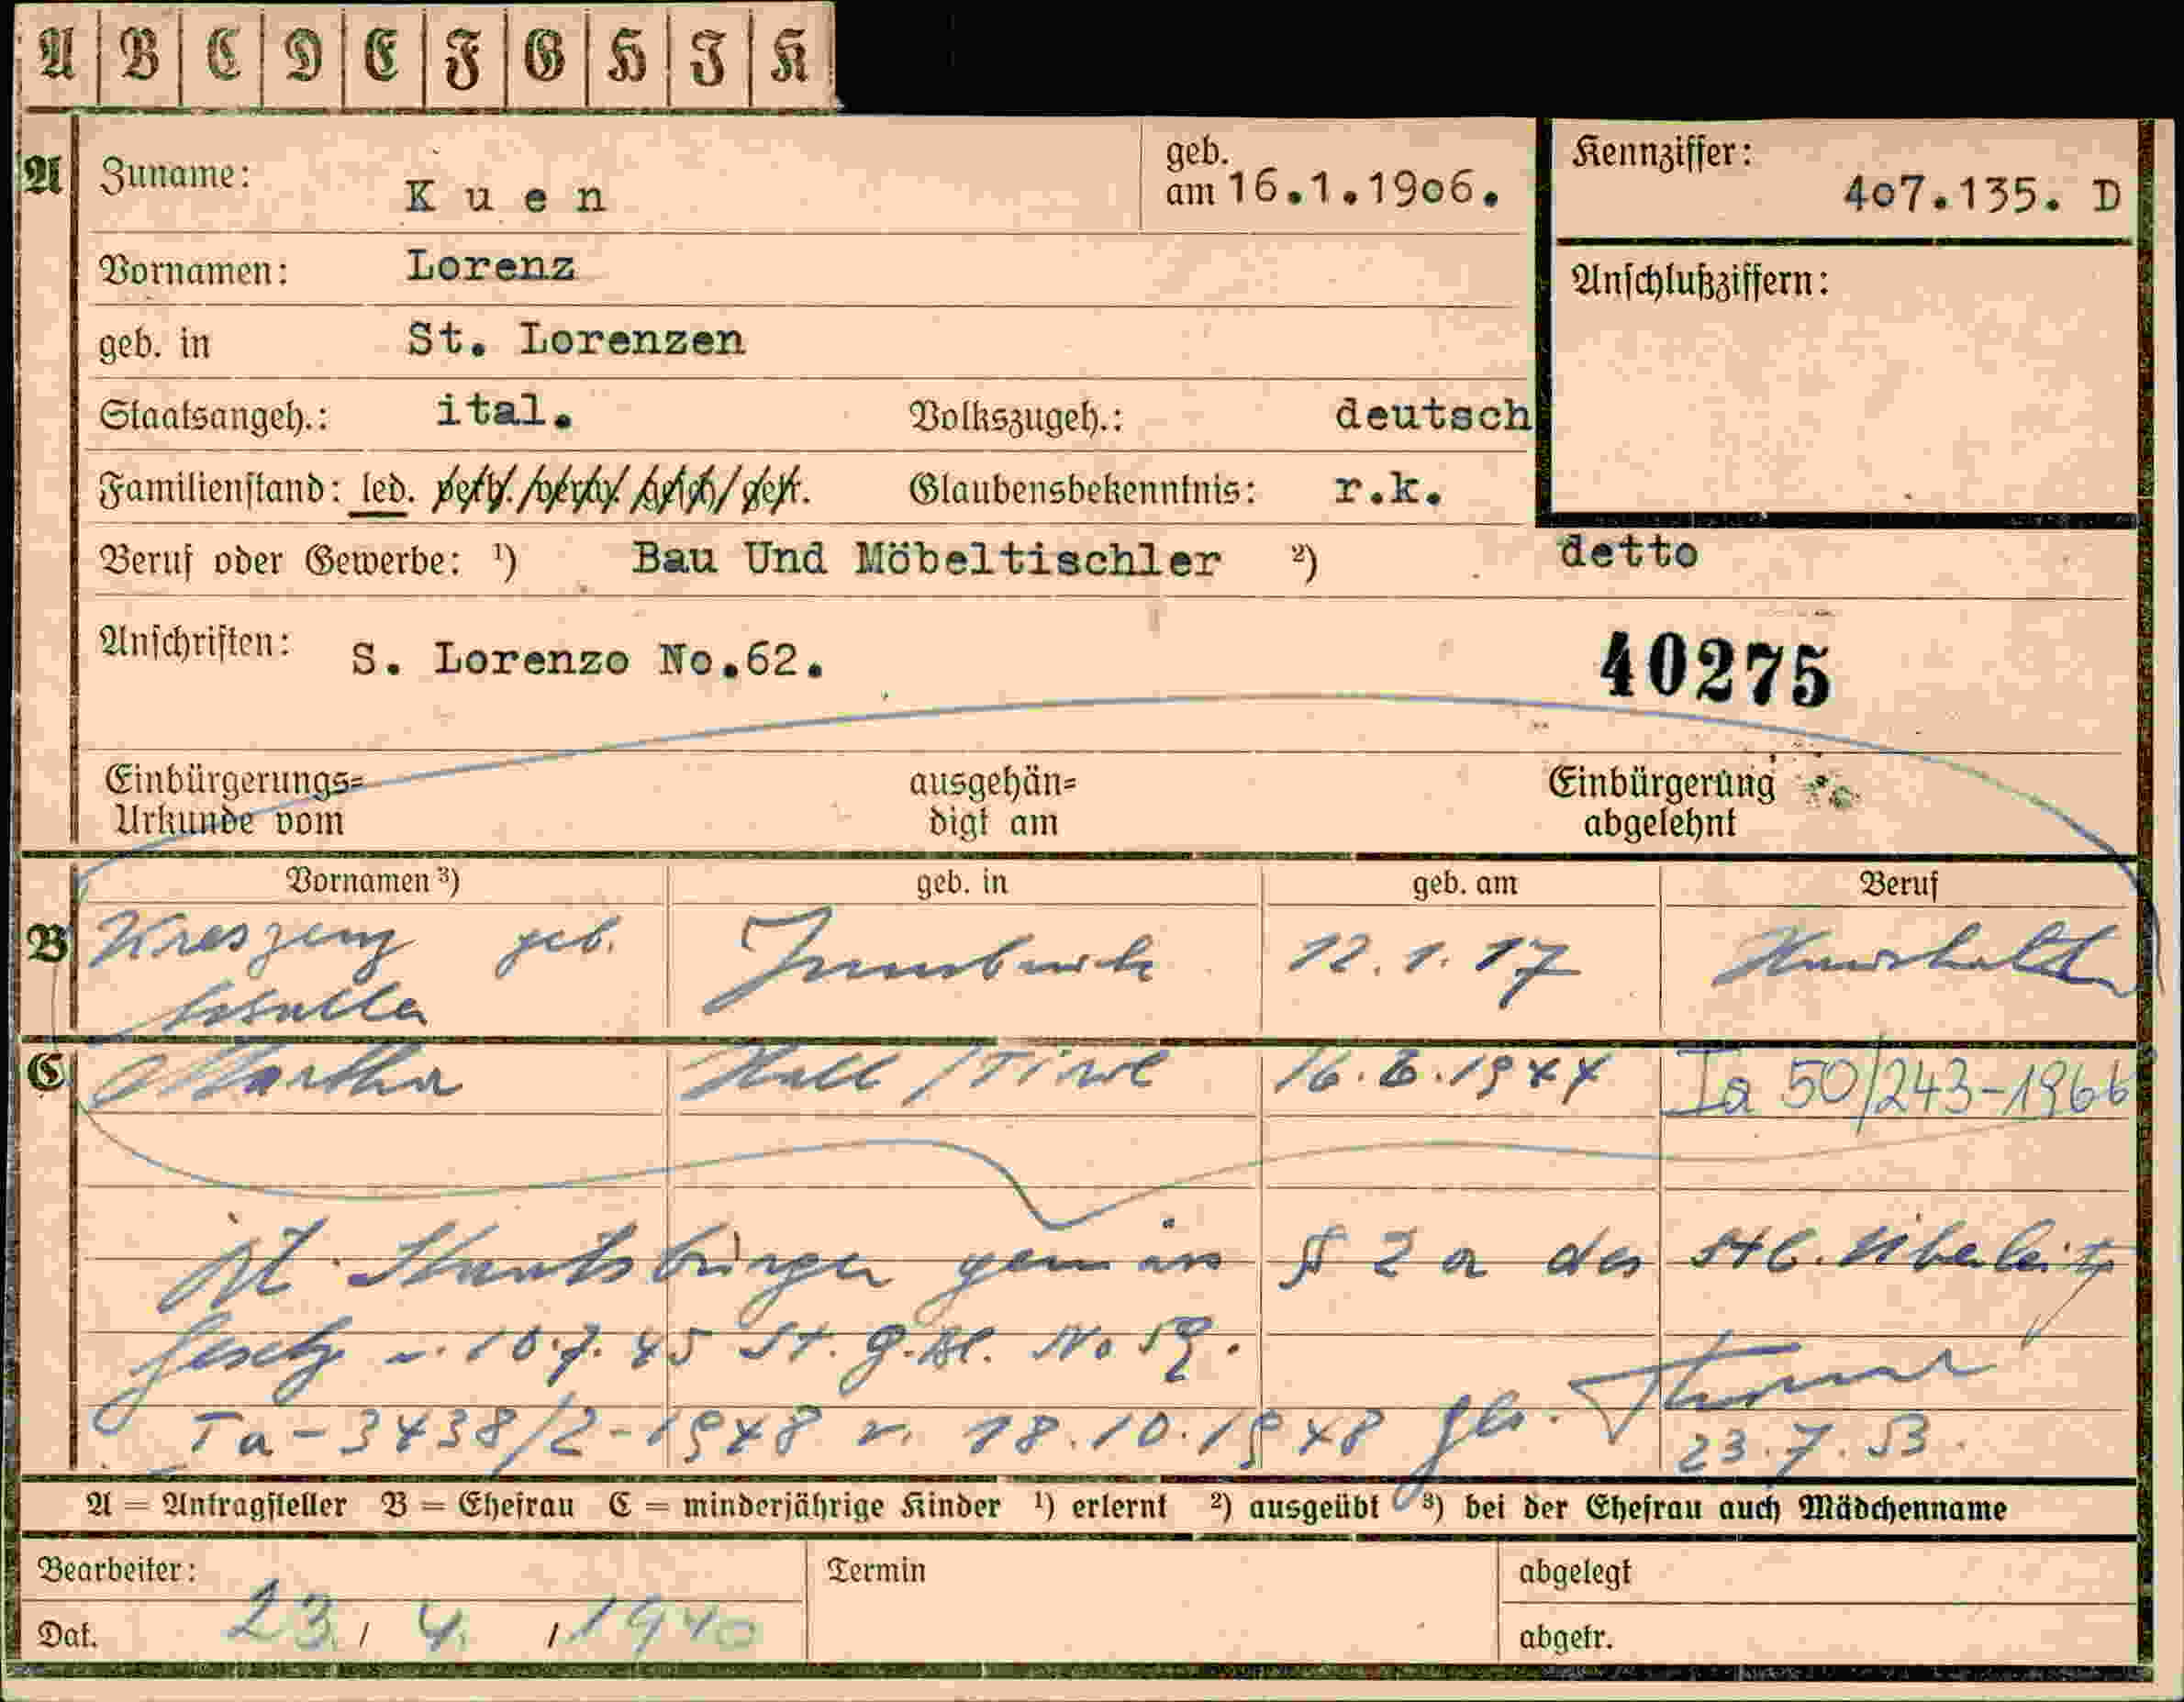 A B C D E F G H I K
A Zuname: Kuen geb. am 16.1.1906. Kennziffer: 407.135. D
Vornamen: Lorenz Anschlußziffern:
geb. in St. Lorenzen
Staatsangeh.: ital. Volkszugeh.: deutsch
Familienstand: led. Glaubensbekenntnis: r.k.
Beruf oder Gewerbe: ¹) Bau Und Möbeltischler ²) detto
Anschriften: S. Lorenzo No.62. 40275
Einbürgerungs= ausgehän= Einbürgerung
Urkunde vom digt am abgelehnt
Vornamen ³) geb. in geb. am Beruf
B Kreszenz geb. Innsbruck 12.1.17 Haushalt
C Martha Hall / Tirol 16.6.1944 Ia 50/243-1966
ist Staatsbürger gemäss § 2 a des Stb. Überleitg
Gesetz v. 10.7.45 St.G.Bl. No 59.
Ia-3438/2-1948 v. 18.10.1948
23.7.53.
A = Antragsteller B = Ehefrau C = minderjährige Kinder ¹) erlernt ²) ausgeübt ³) bei der Ehefrau auch Mädchenname
Bearbeiter: Termin abgelegt
Dat. 23./4./1940 abgetr.